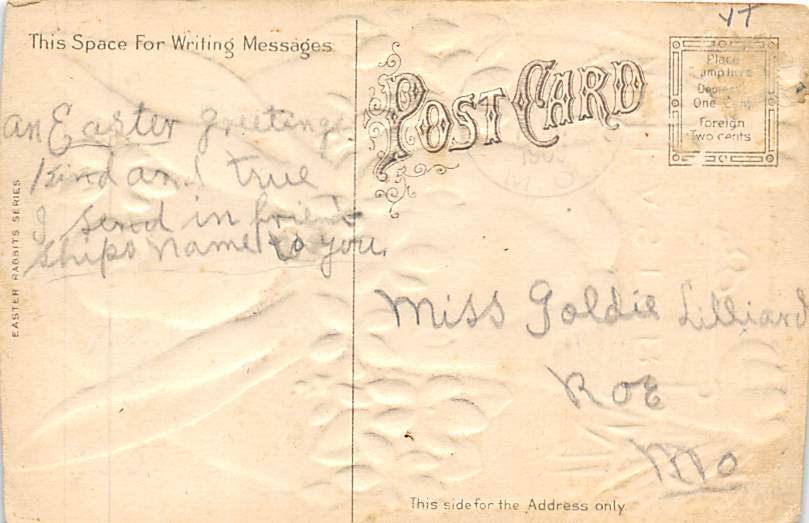 YT
This Space For Writing Messages
POST CARD
Place
Stamp Here
Domestic
One Cent
Foreign
Two cents
an Easter greeting
Kind and true
I send in friend
ships name to you.
EASTER RABBITS SERIES
Miss Goldie Lilliard
Roe
Mo
This side for the Address only.